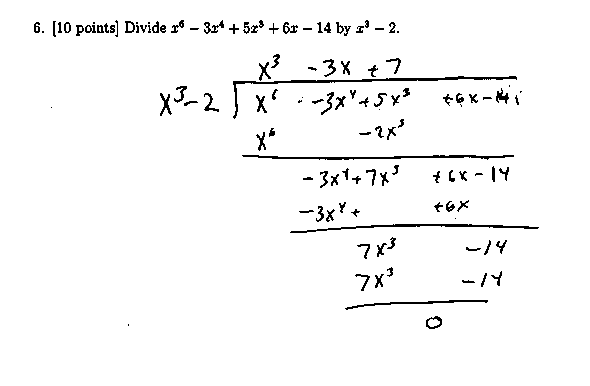 6. [10 points] Divide x⁶ − 3x⁴ + 5x³ + 6x − 14 by x³ − 2.
x³ -3x +7
x³-2 ) x⁶ -3x⁴+5x³ +6x-14
x⁶ -2x³
-3x⁴+7x³ +6x-14
-3x⁴+ +6x
7x³ -14
7x³ -14
0